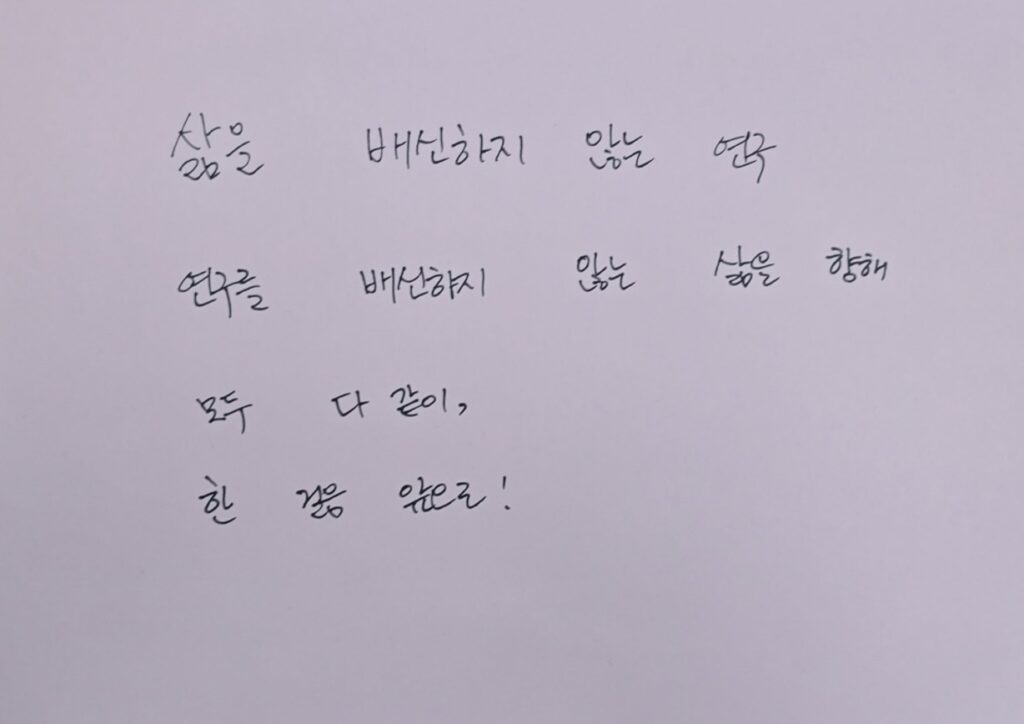 삶을 배신하지 않는 연구
연구를 배신하지 않는 삶을 향해
모두 다 같이,
한 걸음 앞으로!